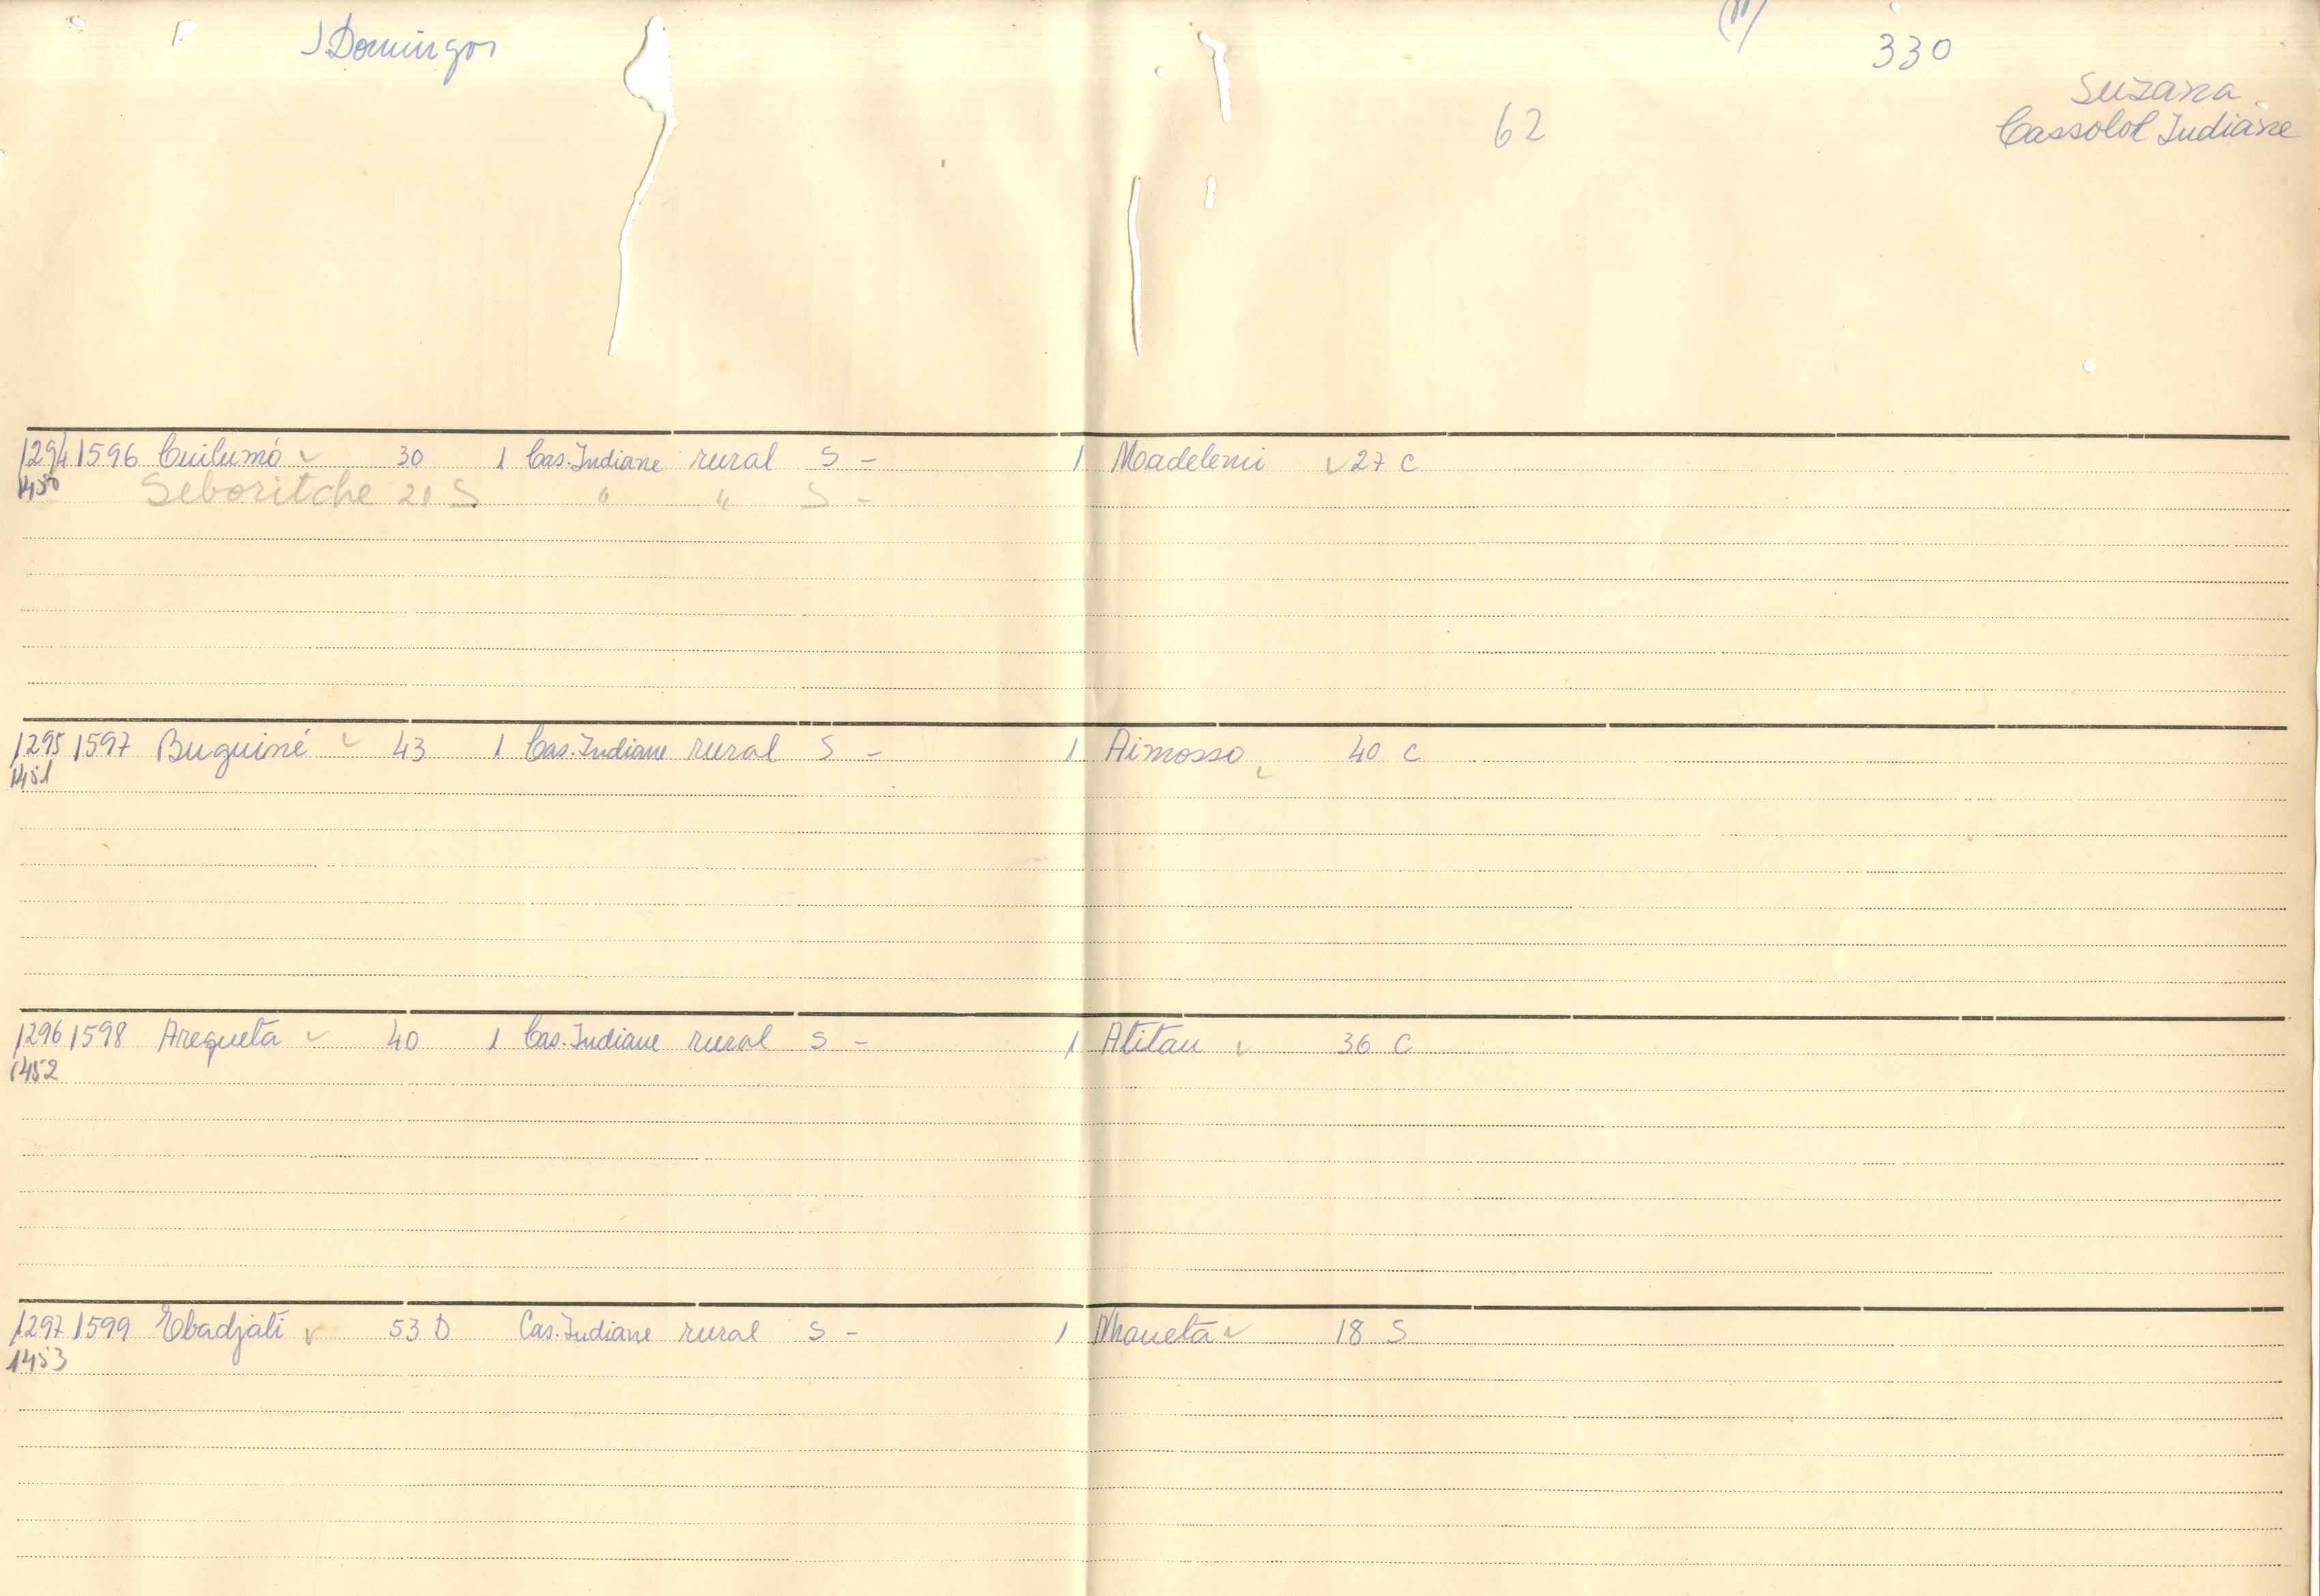 Domingos
330
Suzana
62
Cassolol Indiane
1294 1596 Cuilumó 30 1 Cas. Indiane rural S - 1 Madeleni 27 C
1450 Seboritche 21 S " " S -
1295 1597 Buguiné 43 1 Cas. Indiane rural S - 1 Aimosso 40 C
1451
1296 1598 Arequeta 40 1 Cas. Indiane rural S - 1 Alitau 36 C
1452
1297 1599 Ebadjati 53 D Cas. Indiane rural S - 1 Nhaueta 18 S
1453